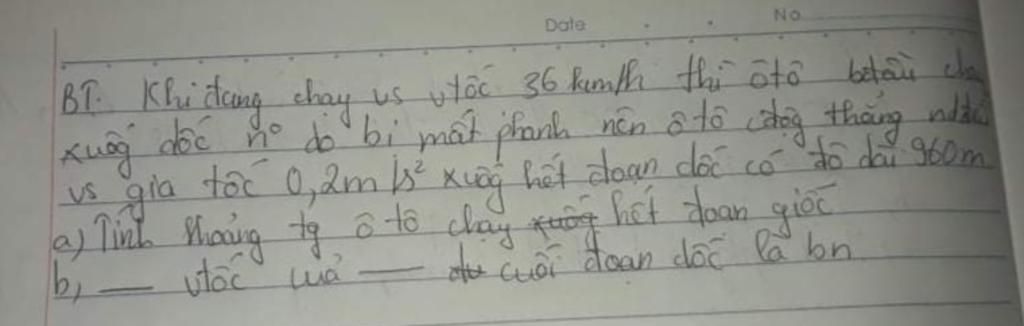 Date No
BT. Khi đang chạy vs vtốc 36 km/h thì ôtô bđầu chạ
xuốg dốc nº do bị mất phanh nên ô tô cđộg thẳng ndđều
vs gia tốc 0,2m/s² xuốg hết đoạn dốc có độ dài 960m
a) Tính khoảng tg ô tô chạy hết đoạn giốc
b, — vtốc của — cuối đoạn dốc là bn